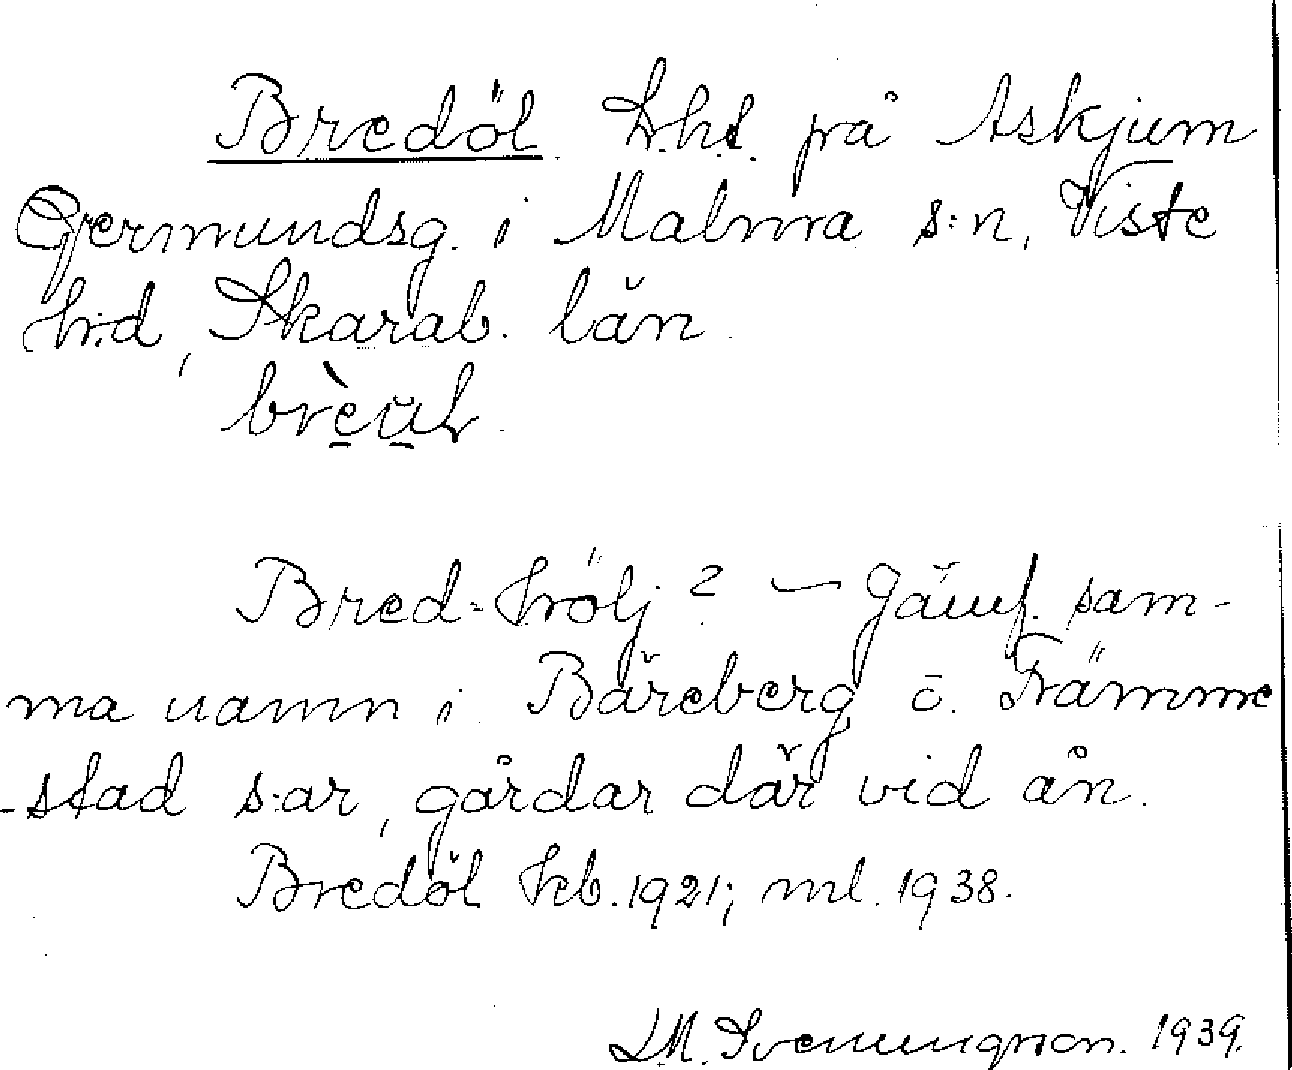 Bredöl. L.h.t. på Askjum
Germundsg. i Malma s:n, Viste
h:d, Skarab. län.
brèuL
Bred-hölj? – Jämf. sam-
ma namn i Bäreberg o. Främme
-stad s:ar, gårdar där vid ån.
Bredöl kb. 1921; ml. 1938.
LM. Svenungsson. 1939.